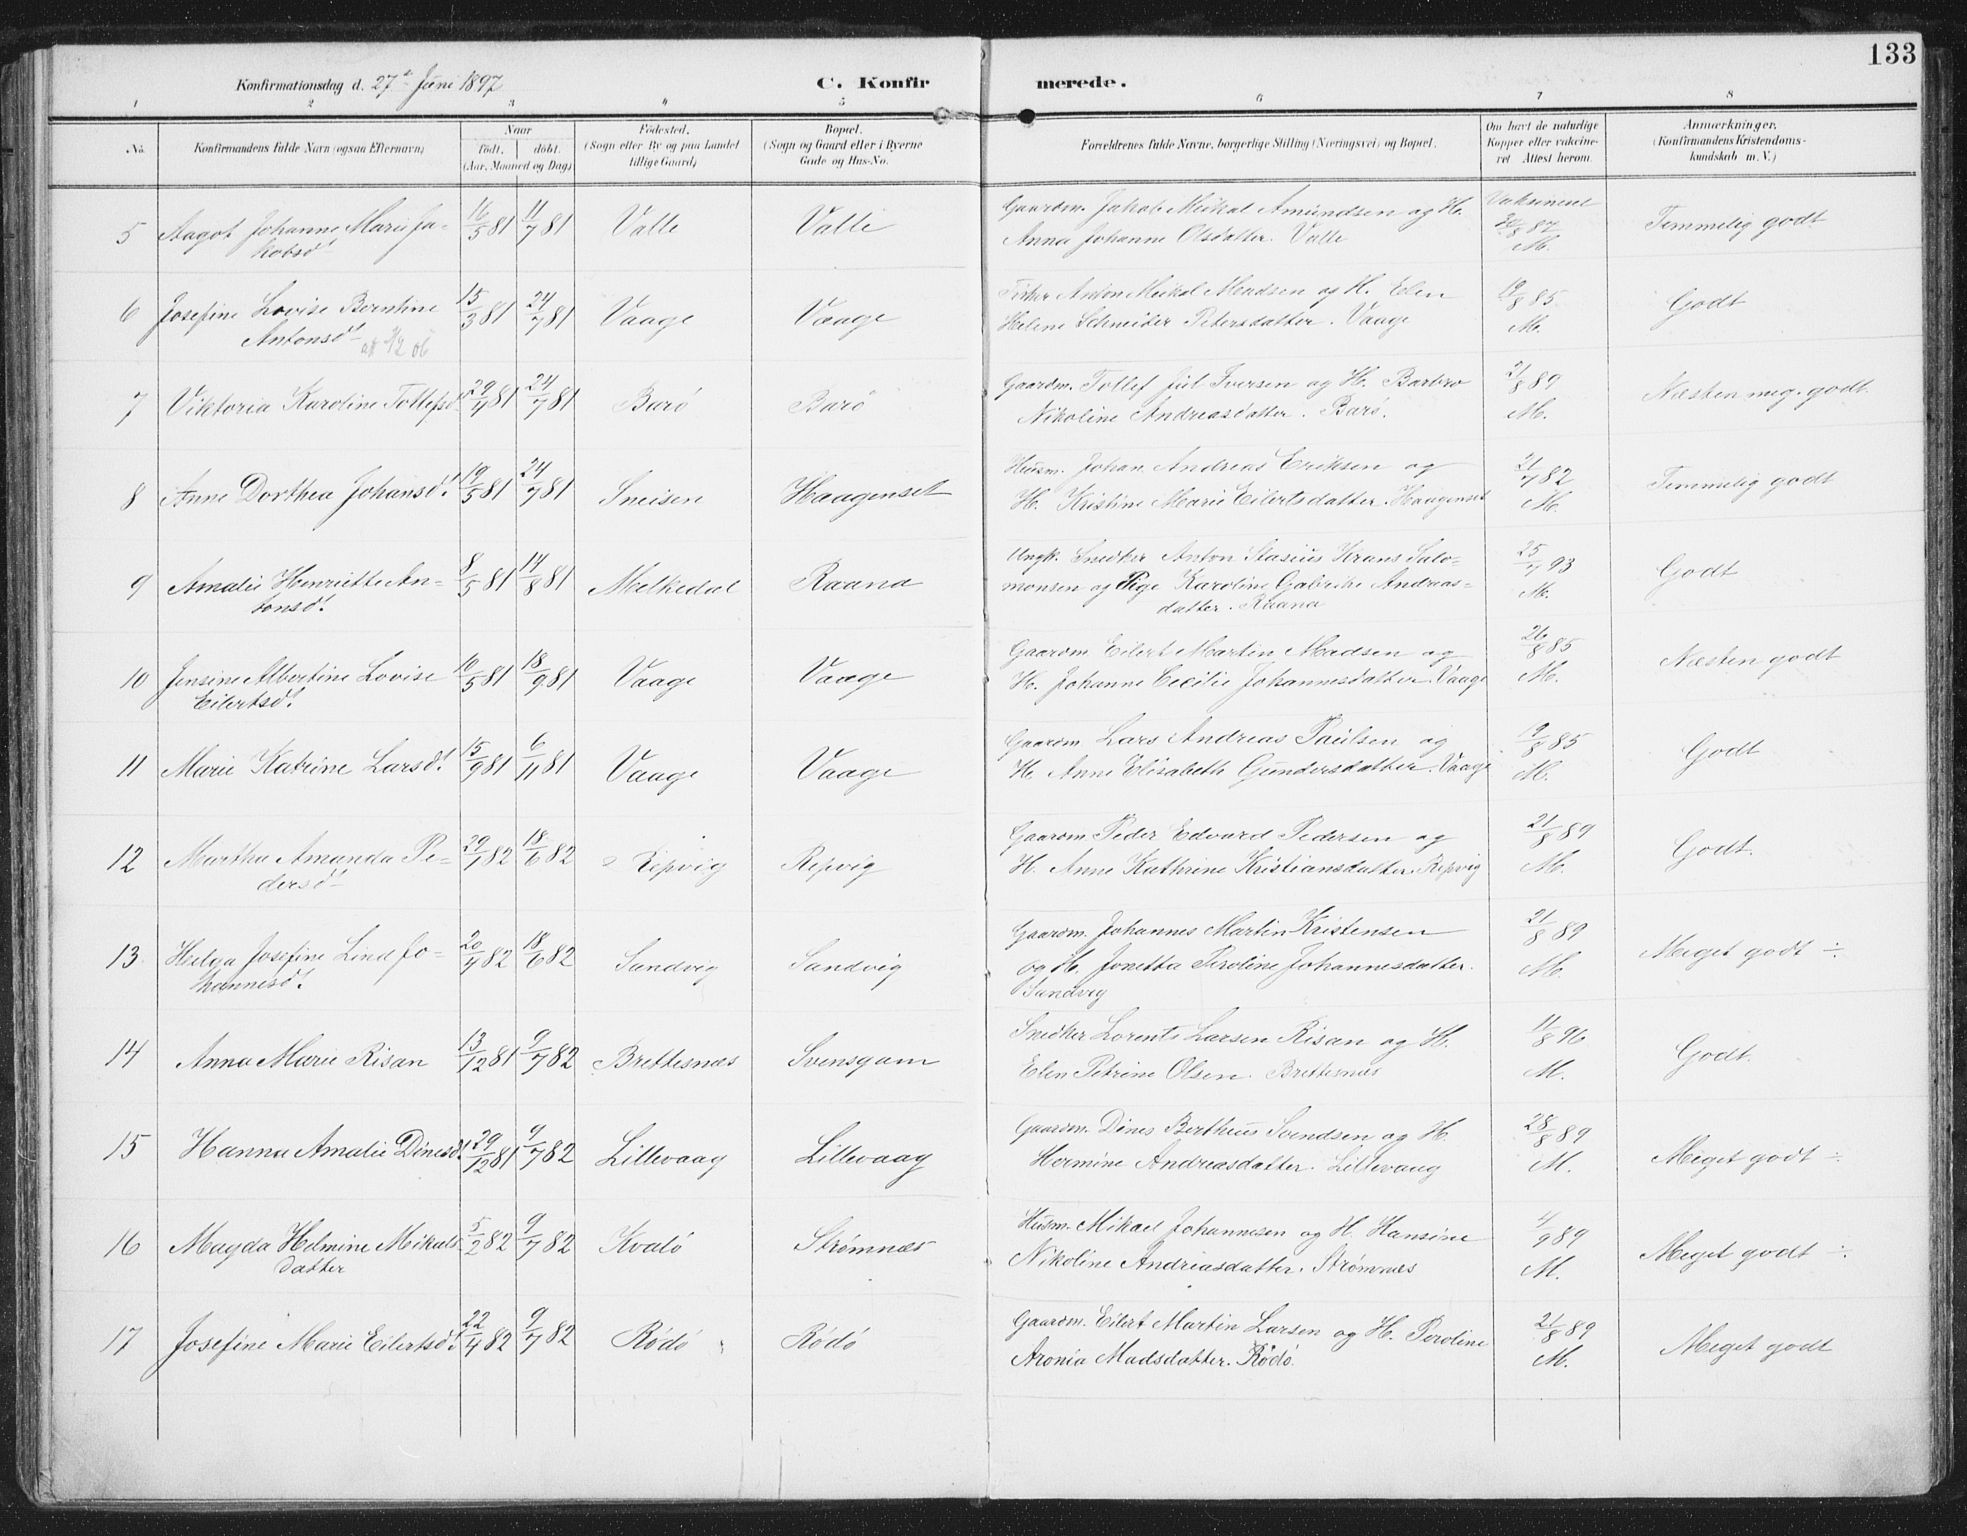 133
Konfirmationsdag d. 27de Juni 1897 C. Konfirmerede.
1 2 3 4 5 6 7 8
No. Konfirmandens fulde Navn (ogsaa Efternavn) Naar født. døbt. (Aar, Maaned og Dag) Fødested. (Sogn eller By og paa Landet tillige Gaard) Bopæl. (Sogn og Gaard eller i Byerne Gade og Hus-No. Forældrenes fulde Navne, borgerlige Stilling (Næringsvei) og Bopæl. Om havt de naturlige Kopper eller vakcineret. Attest herom. Anmærkninger. (Konfirmandens Kristendomskundskab m. V.)
5 Aagot Johanne Marie Ja- 16/5 81 11/7 81 Valle Valle Gaardm. Jakob Mikal Amundsen og H. Vaksineret
kobsd. Anna Johanne Olsdatter. Valle 87 M. Temmelig godt
6 Josefine Lovise Berntine 15/3 81 24/7 81 Vaage Vaage Fisker Anton Mikal Madsen og H. Elen 19/8 85 Godt
Antonsd. Helene Schneider Petersdatter. Vaage M.
7 Viktoria Karoline Tollefsd. 29/4 81 24/7 81 Barö Barö Gaardm. Tollef Jul Iversen og H. Barbro 21/8 89 Næsten meg. godt
Nikoline Andreasdatter. Barö. M.
8 Anne Dorthea Johansd. 19/5 81 24/7 81 Sneisen Haagenset Husm. Johan Andreas Eriksen og 21/7 82 Temmelig godt
H. Kristine Marie Eilertsdatter. Haagenset M.
9 Amalie Henriette An- 8/5 81 14/8 81 Melkedal Raana Ungk. Snedker Anton Stasius Krans Salo- 25/7 93 Godt
tonsd. monsen og Pige Karoline Gabrikke Andreas- M.
datter. Raana
10 Jensine Albertine Lovise 10/5 81 18/9 81 Vaage Vaage Gaardm Eilert Martin Madsen og 26/8 85 Næsten godt
Eilertsd. H. Johanne Cecilie Johannesdatter. Vaage M.
11 Marie Katrine Larsd. 15/9 81 6/11 81 Vaage Vaage Gaardm Lars Andreas Paulsen og 19/8 85 Godt
H. Anne Elisabeth Gundersdatter. Vaage M.
12 Martha Amanda Pe- 29/1 82 18/6 82 Repvig Repvig Gaardm Peder Edvard Pedersen og 21/8 89 Godt.
dersd. H. Anne Kathrine Kristiansdatter. Repvig M.
13 Helga Josefine Lind Jo- 20/4 82 18/6 82 Sandvig Sandvig Gaardm. Johannes Martin Kristensen 21/8 89 Meget godt ÷.
hannesd. og H. Jonetta Peroline Johannesdatter. M.
Sandvig
14 Anna Marie Risan 13/12 81 9/7 82 Brettesnæs Svensgam Snedker Lorents Larsen Risan og H. 11/8 96 Godt.
Elen Petrine Olsen. Brettesnæs M.
15 Hanna Amalie Dinesd. 29/12 81 9/7 82 Lillevaag Lillevaag Gaardm. Dines Bertheus Svendsen og H. 28/8 89 Meget godt ÷
Hermine Andreasdatter. Lillevaag M.
16 Magda Helmine Mikals- 5/2 82 9/7 82 Kvalö Strømnæs Husm. Mikael Johannesen og H. Hansine 4/9 89 Meget godt ÷.
datter Nikoline Andreasdatter. Strømnæs M.
17 Josefine Marie Eilertsd. 22/4 82 9/7 82 Rödö Rödö Gaardm. Eilert Martin Larsen og H. Peroline 21/8 89 Meget godt
Aronia Madsdatter. Rödö. M.